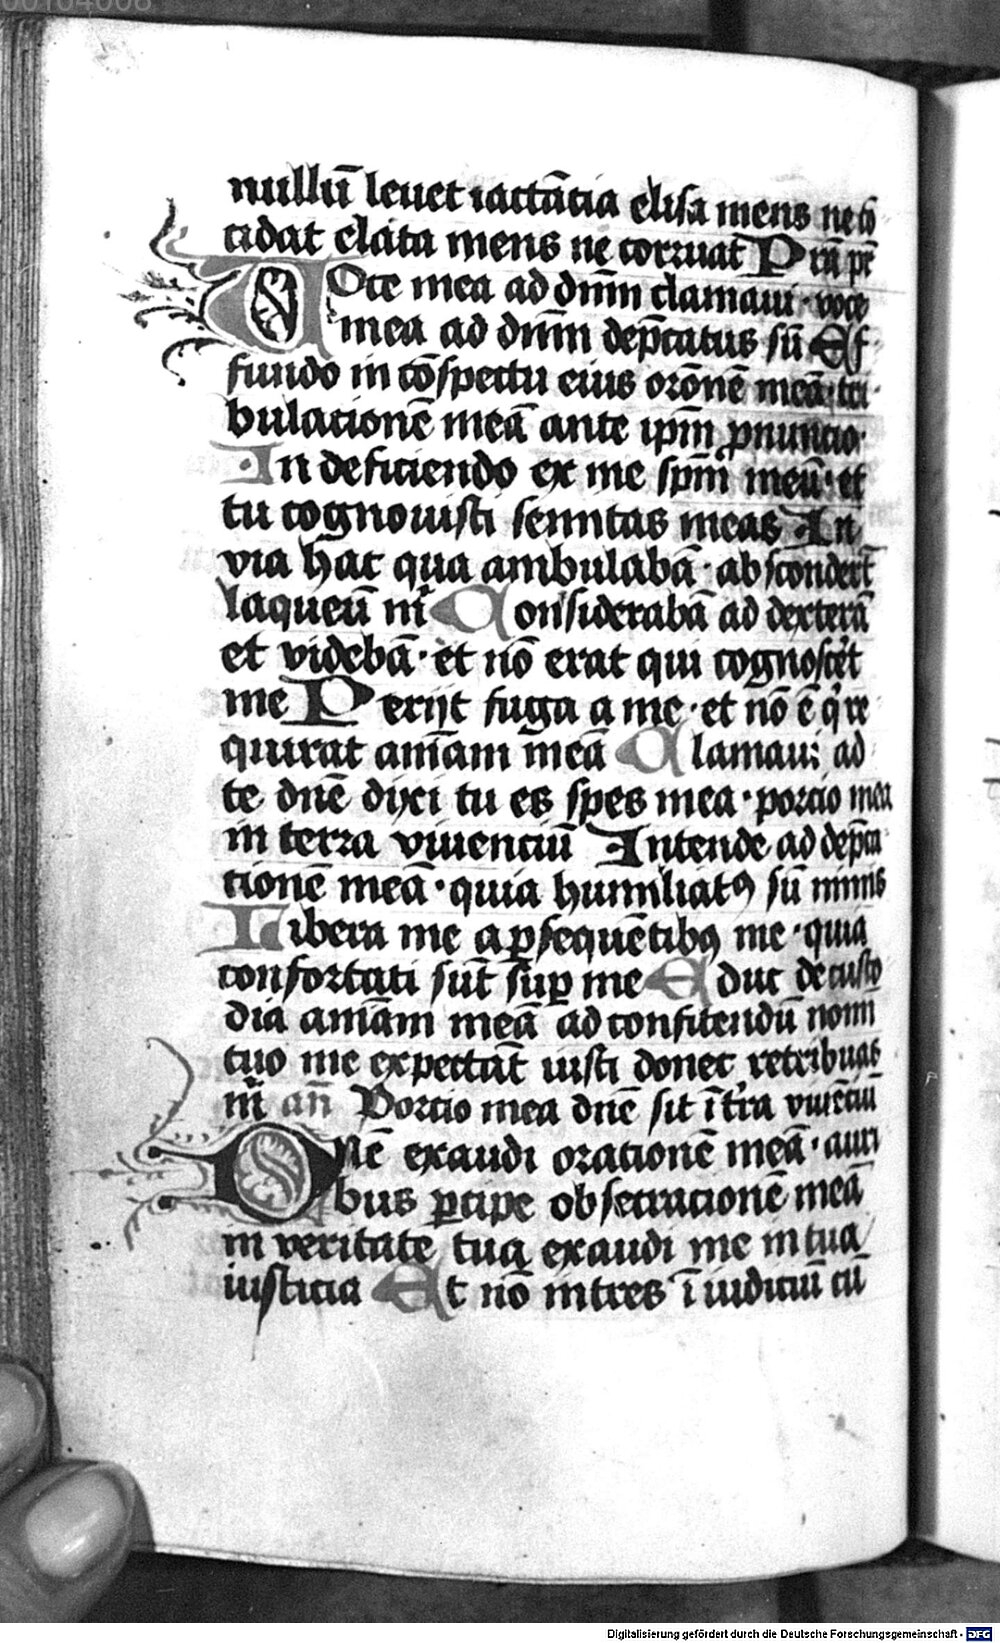 00104008
nullū leuet iactācia elisa mens ne cō
cidat elata mens ne corruat Prā pr̄
Voce mea ad dn̄m clamaui · voce
mea ad dn̄m dep̄catus sū Ef
fundo in cōspectu eius orōnē meā · tri
bulacionē meā ante ip̄m ꝓnuncio·
In deficiendo ex me sp̄m meū · et
tu cognouisti semitas meas In
via hac qua ambulabā · absconderūt
laqueū m̄ Considerabā ad dexterā
et videbā · et nō erat qui cognosc̄et
me Perijt fuga a me · et nō ē q̄ re
quirat am̄am meā Clamaui ad
te dnē dixi tu es spes mea · porcio mea
in terra viuenciū Intende ad dep̄ca
cionē meā · quia humiliatꝰ sū nimis
Libera me a ꝑsequētibꝰ me · quia
confortati sūt suꝑ me Educ de custo
dia am̄am meā ad confitendū nomī
tuo me expectāt iusti donec retribuas
m̄ an̄ Porcio mea dnē sit ī tr̄a viuēciū
Dnē exaudi oracionē meā · auri
bus ꝑcipe obsecracionē meā
in veritate tua exaudi me in tua
iusticia Et nō intres ī iudiciū cū
Digitalisierung gefördert durch die Deutsche Forschungsgemeinschaft - DFG